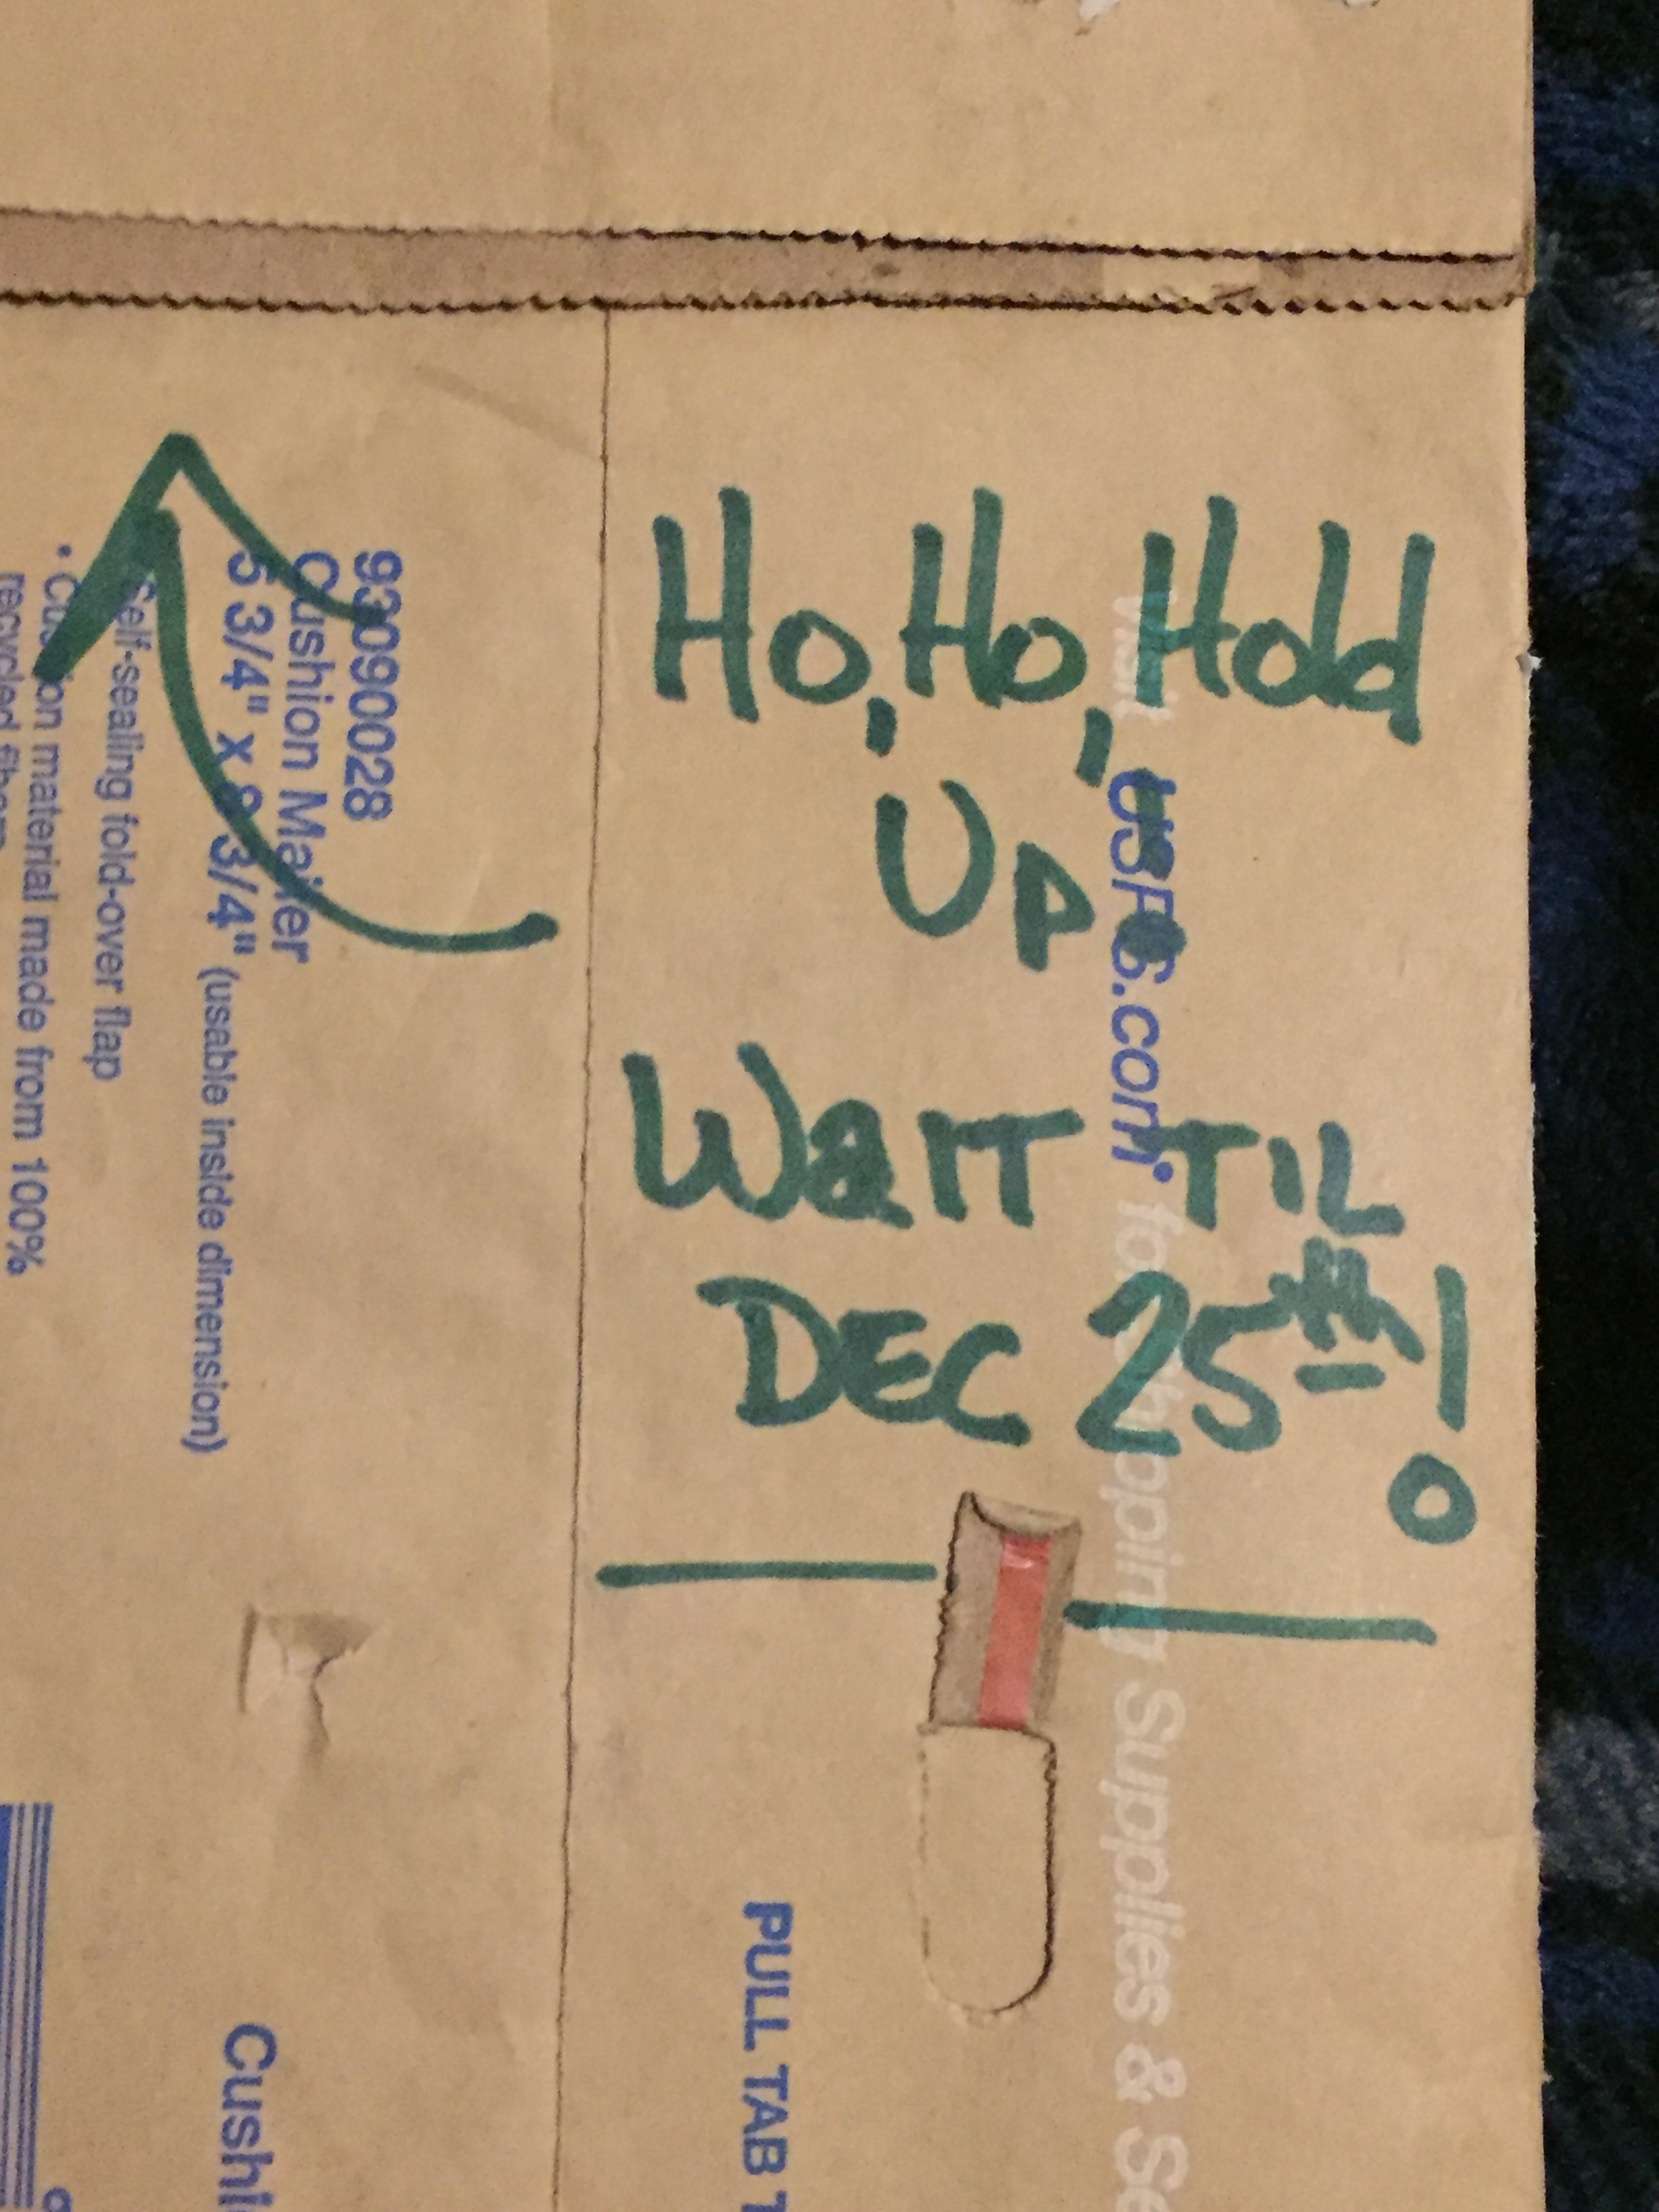 Ho, Ho, Hold
Up
Wait Til
Dec 25th!
visit USPS.com for shipping Supplies & Se
93090028
Cushion Mailer
5 3/4" x 8 3/4" (usable inside dimension)
Self-sealing fold-over flap
• Cushion material made from 100%
recycled fibers
PULL TAB T
Cushi